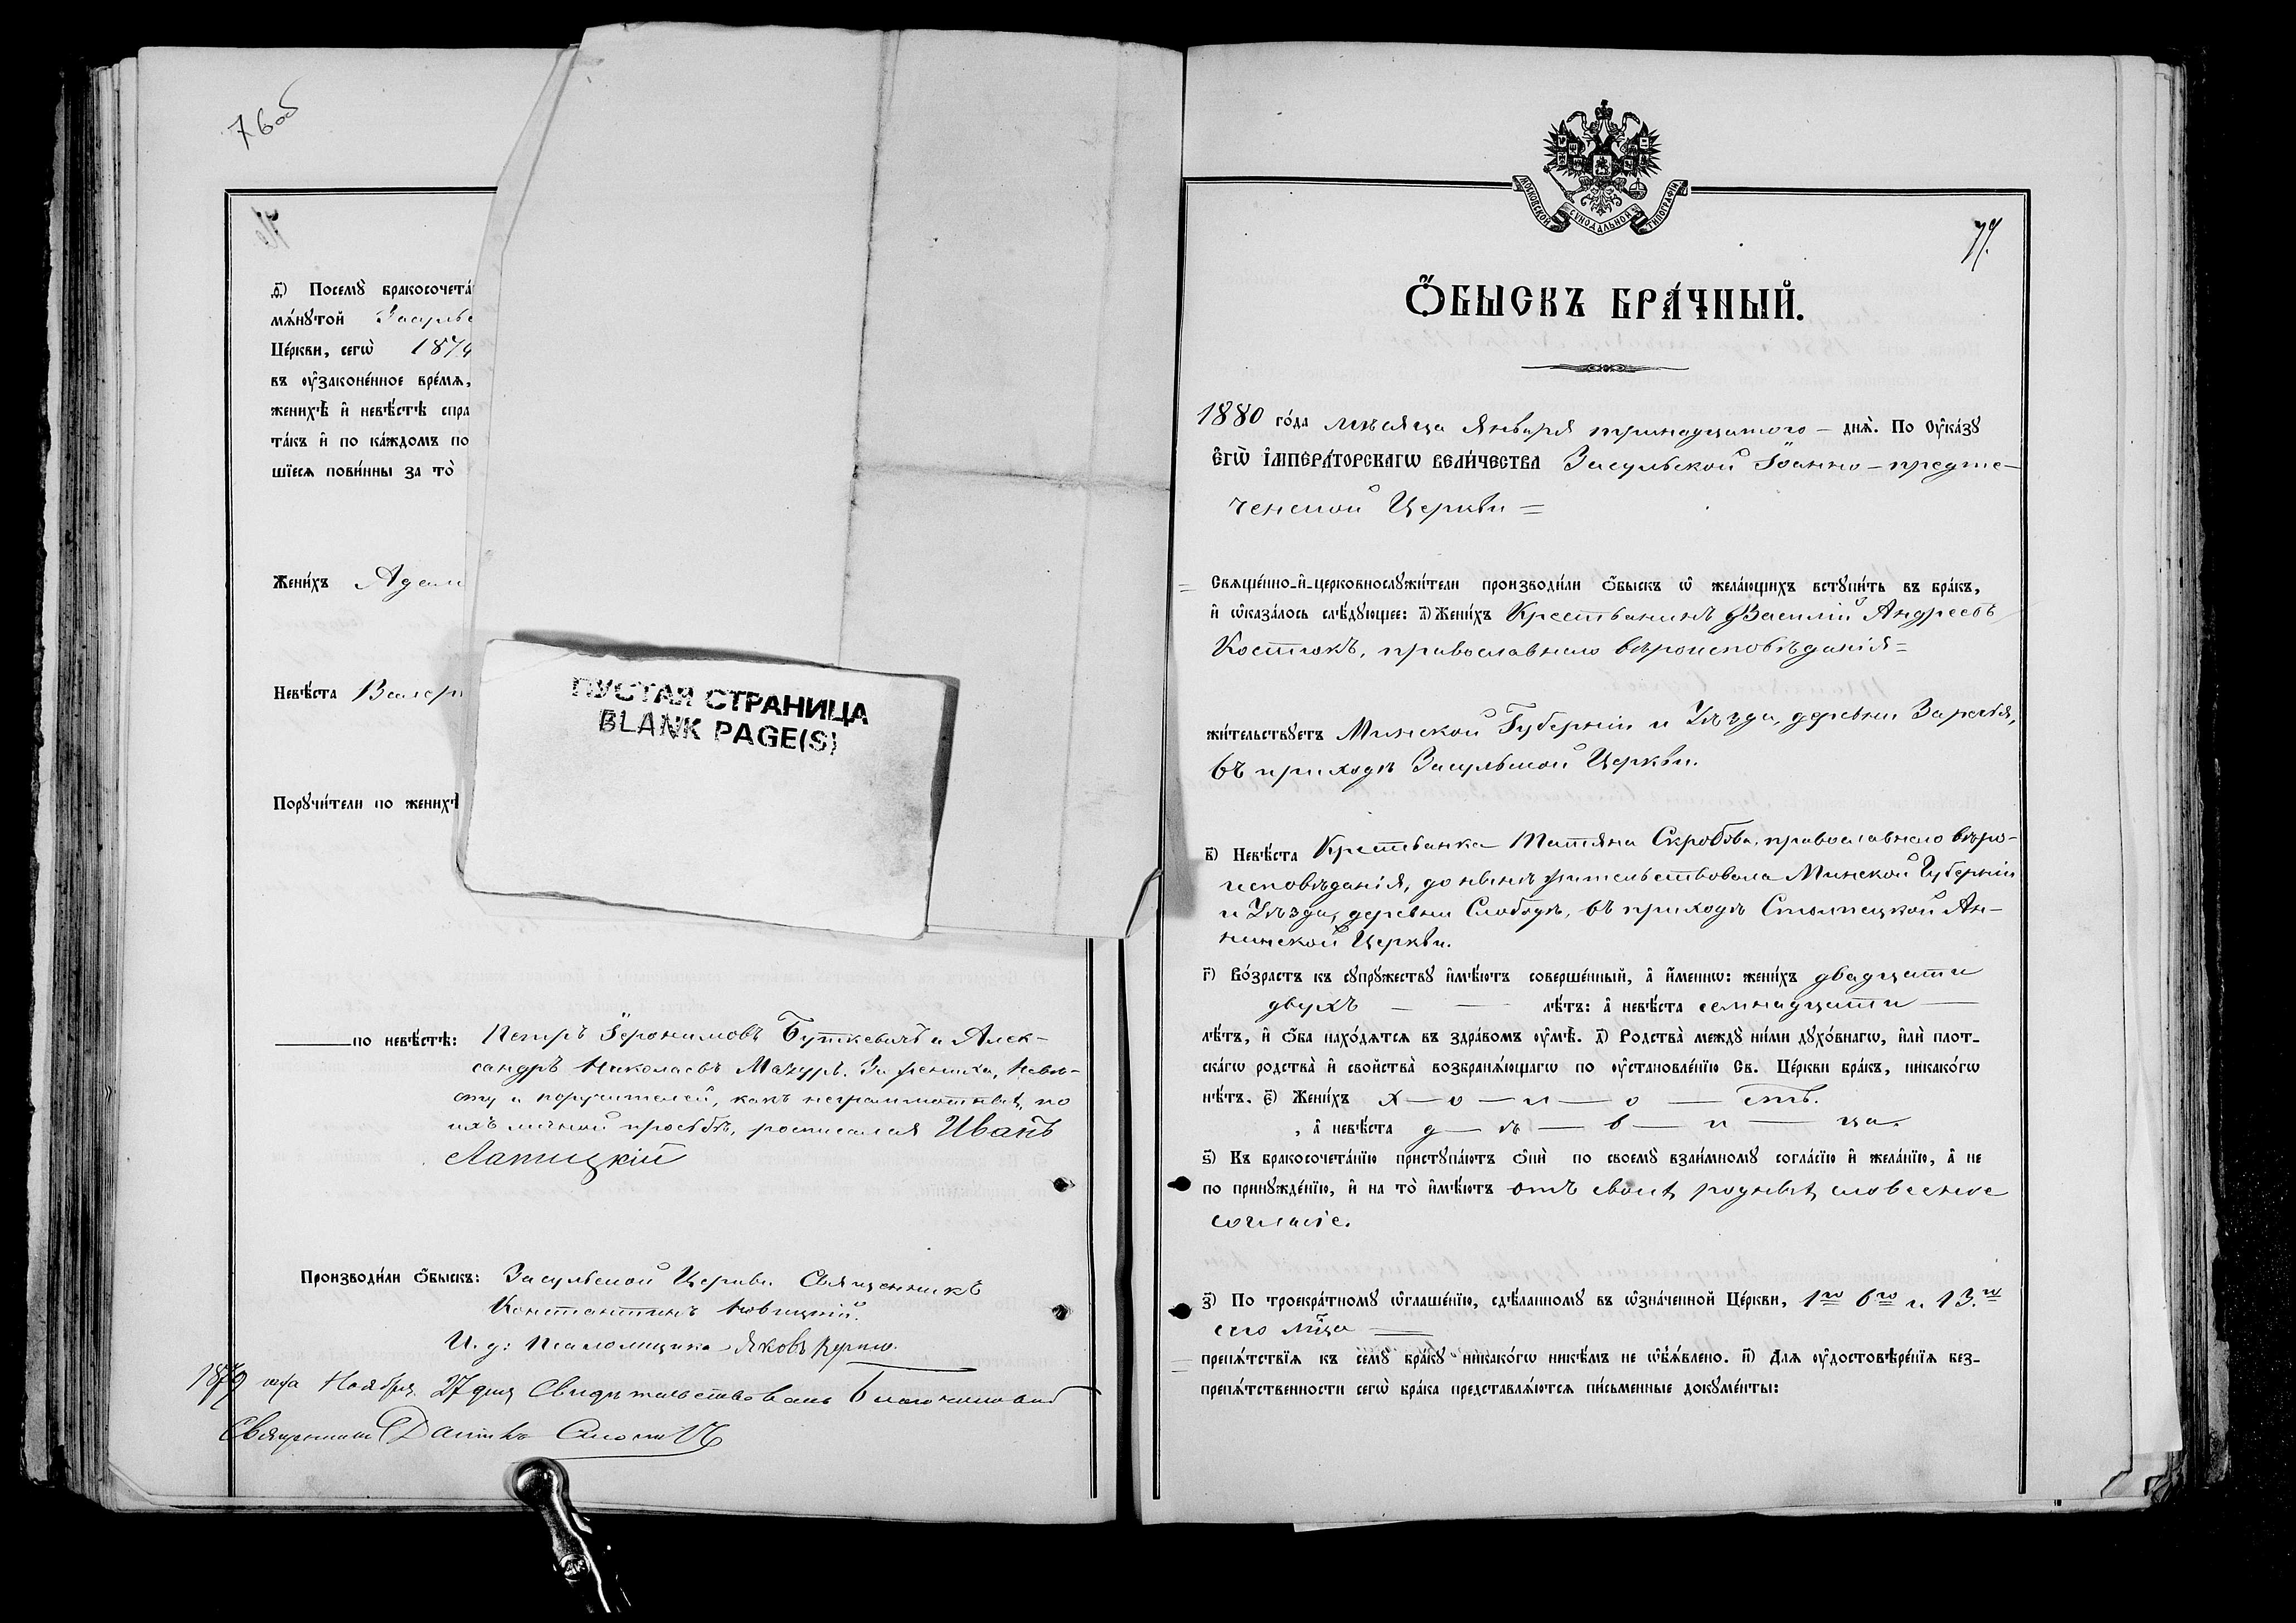 76об
а҃) Посемꙋ бракосочета
мѧ́нꙋтой Засуль
Це́ркви, сегѡ̀ 1879
въ ᲂу҆законе́нное вре́мѧ,
женихѣ̀ и҆ невѣ́стѣ спра
та́къ и҆ по ка́ждомъ по
шїесѧ пови́нны за то̀
Жени́хъ Адам
Невѣ́ста Валер
Порꙋчи́тели по женихѣ̀
ПУСТАЯ СТРАНИЦА
BLANK PAGE(S)
по невѣ́стѣ: Петръ Іеронимовъ Буткевичъ и Алек-
сандръ Николаевъ Мазуръ. За жениха, невѣ-
сту и поручителей, какъ неграмотныхъ, по
ихъ личной просьбѣ, росписался Иванъ
Лапицкій
Производи́ли ѻ҆́быскъ: Засульской Церкви Священникъ
Константинъ
И. д: Псаломщика Яковъ
1879 года Ноября 27 дня Свидѣтельствовалъ Благочинный
Священникъ
МОСКОВСКОЙ СѴНОДАЛЬНОЙ ТИПОГРАФІИ
77.
Ѻ҆́БЫСКЪ БРА́ЧНЫЙ.
1880 го́да мѣсяца Января тринадцатаго – днѧ̀. По Оу҆ка́зꙋ
Є҆ГѠ̀ І҆МПЕРА́ТОРСКАГѠ ВЕЛИ́ЧЕСТВА Засульской Іоанно-предте-
ченской Церкви =
Свѧще́нно-и҆-церковнослꙋжи́тели производи́ли ѻ҆́быскъ ѡ҆ жела́ющихъ встꙋпи́ть въ бра́къ,
и҆ ѡ҆каза́лось слѣ́дꙋющее: а҃) Жени́хъ Крестьянинъ Василій Андреевъ
Костюкъ, православнаго вѣроисповѣданія =
жи́тельствꙋетъ Минской Губерніи и Уѣзда, деревни Заречья,
въ приходѣ Засульской Церкви.
в҃) Невѣ́ста Крестьянка Татіяна Скробова, православнаго вѣро-
исповѣданія, до нынѣ жительствовала Минской Губерніи
и Уѣзда, деревни Слободѣ, въ приходѣ Столпецкой Ан-
нинской Церкви.
г҃) Во́зрастъ къ сꙋпрꙋжествꙋ и҆мѣ́ютъ совершенный, а҆ и҆́меннѡ: жени́хъ двадцати
двухъ — — лѣ́тъ: а҆ невѣ́ста семнадцати —
лѣ́тъ, и҆ ѻ҆́ба нахо́дѧтсѧ въ здра́вомъ ᲂу҆мѣ̀. д҃) Родства̀ междꙋ̀ ни́ми дꙋхо́внагѡ, и҆лѝ плот-
ска́гѡ родства̀ и҆ сво́йства возбранѧ́ющагѡ по ᲂу҆становле́нїю Св. Це́ркви бра́къ, никако́гѡ
нѣ́тъ. є҃) Жени́хъ х — о — л — о — стъ.
, а҆ невѣ́ста д — ѣ — в — и — ца.
ѕ҃) Къ бракосочета́нїю пристꙋпа́ютъ ѻ҆нѝ по своемꙋ̀ взаи́мномꙋ согла́сїю и҆ жела́нїю, а҆ не
по принꙋжде́нїю, и҆ на то̀ и҆мѣ́ютъ отъ своихъ родныхъ словесное
согласіе.
з҃) По троекра́тномꙋ ѡ҆глаше́нїю, сдѣ́ланномꙋ въ ѡ҆зна́ченной Це́ркви, 1го 6го и 13.го
сего мѣ҃ца —
препѧ́тствїѧ къ семꙋ̀ бра́кꙋ никако́гѡ никѣ́мъ не ѡ҆бѧ́влено. и҃) Длѧ ᲂу҆достовѣре́нїѧ без-
препѧ́тственности сегѡ̀ бра́ка представлѧ́ютсѧ пи́сьменные докꙋме́нты: